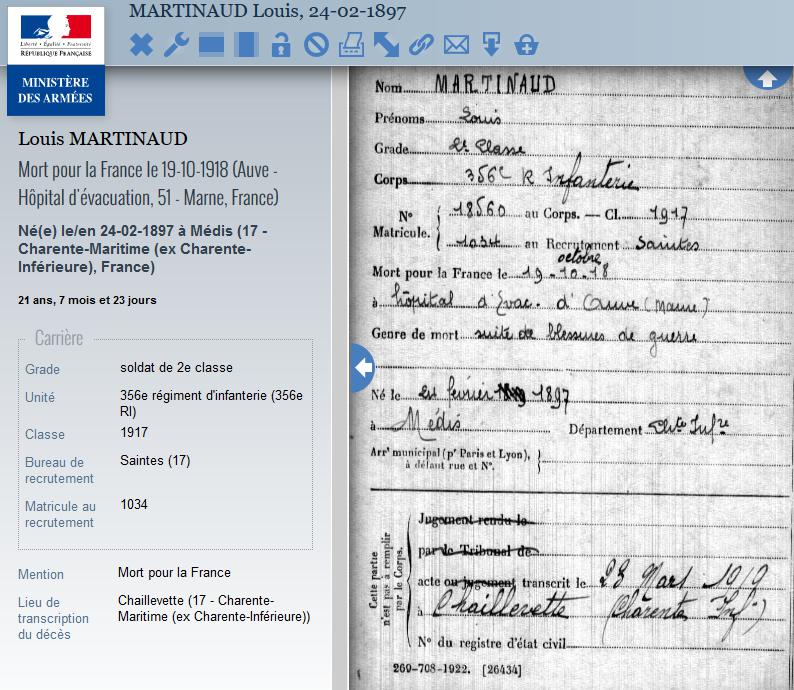 MARTINAUD Louis, 24-02-1897
Liberté • Égalité • Fraternité
RÉPUBLIQUE FRANÇAISE
MINISTÈRE
DES ARMÉES
Louis MARTINAUD
Mort pour la France le 19-10-1918 (Auve -
Hôpital d'évacuation, 51 - Marne, France)
Né(e) le/en 24-02-1897 à Médis (17 -
Charente-Maritime (ex Charente-
Inférieure), France)
21 ans, 7 mois et 23 jours
Carrière
Grade soldat de 2e classe
Unité 356e régiment d'infanterie (356e
RI)
Classe 1917
Bureau de Saintes (17)
recrutement
Matricule au 1034
recrutement
Mention Mort pour la France
Lieu de Chaillevette (17 - Charente-
transcription Maritime (ex Charente-Inférieure))
du décès
Nom MARTINAUD
Prénoms Louis
Grade 2e Classe
Corps 356e R Infanterie
N° Matricule.
18560 au Corps. — Cl. 1917
1034 au Recrutement Saintes
octobre
Mort pour la France le 19-10-18
à hôpital d'Evac. d'Auve (Marne)
Genre de mort suite de blessures de guerre
Né le février 1897
à Médis Département Chte Infre
Arrt municipal (pr Paris et Lyon),
à défaut rue et N°.
Cette partie
n'est pas à remplir
par le Corps.
Jugement rendu le
par le Tribunal de
acte ou jugement transcrit le 23 Mars 1919
à Chaillevette (Charente Infre)
N° du registre d'état civil
269-708-1922. [26434]